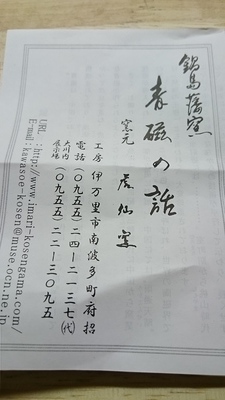 鍋島藩窯
青磁の話
窯元 虎仙窯
工房 伊万里市南波多町府招
電話(〇九五五)二四―二一三七(代)
大川内
展示場(〇九五五)二二―三〇九五
URL :http://www.imari-kosengama.com/
E-mail:kawasoe-kosen@muse.ocn.ne.jp